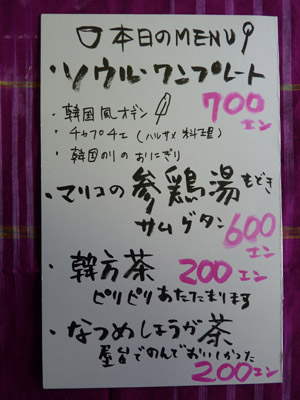 本日のMENU
・ソウル・ワンプレート
700エン
・韓国風オデン
・チャプチェ(ハルサメ料理)
・韓国のりのおにぎり
・マリコの参鶏湯もどき
サムゲタン 600エン
・韓方茶 200エン
ピリピリあたたまります
・なつめしょうが茶
屋台でのんでおいしかった
200エン